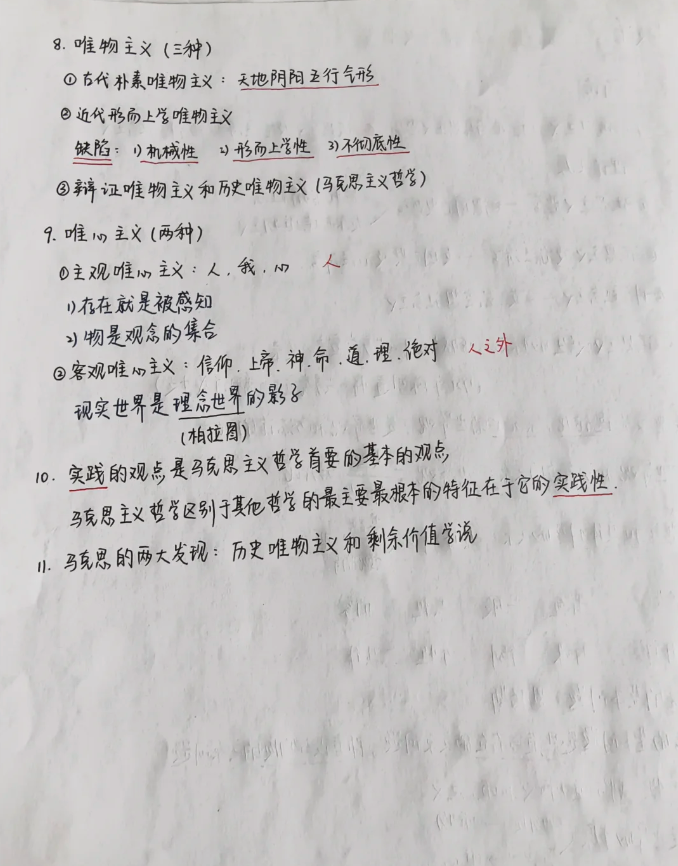 8. 唯物主义 (三种)
① 古代朴素唯物主义: 天地阴阳五行气形
② 近代形而上学唯物主义
缺陷: 1) 机械性 2) 形而上学性 3) 不彻底性
③ 辩证唯物主义和历史唯物主义 (马克思主义哲学)
9. 唯心主义 (两种)
① 主观唯心主义: 人, 我, 心 人
1) 存在就是被感知
2) 物是观念的集合
② 客观唯心主义: 信仰、上帝、神、命、道、理、绝对 人之外
现实世界是理念世界的影子
(柏拉图)
10. 实践的观点是马克思主义哲学首要的基本的观点
马克思主义哲学区别于其他哲学的最主要最根本的特征在于它的实践性.
11. 马克思的两大发现: 历史唯物主义和剩余价值学说